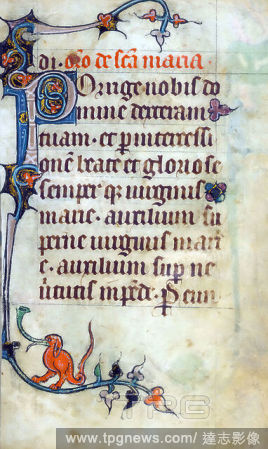 di. or̄o de sc̄a maria.
Porrige nobis do
mine dexteram
tuam. et p intercessi
onē beate et gloriose
semper q; uirginis
marie. auxilium su
perne uirginis mari
e. auxilium sup ne
uirtutis impēde. P eun
TPG
www.tpgnews.com/ 達志影像